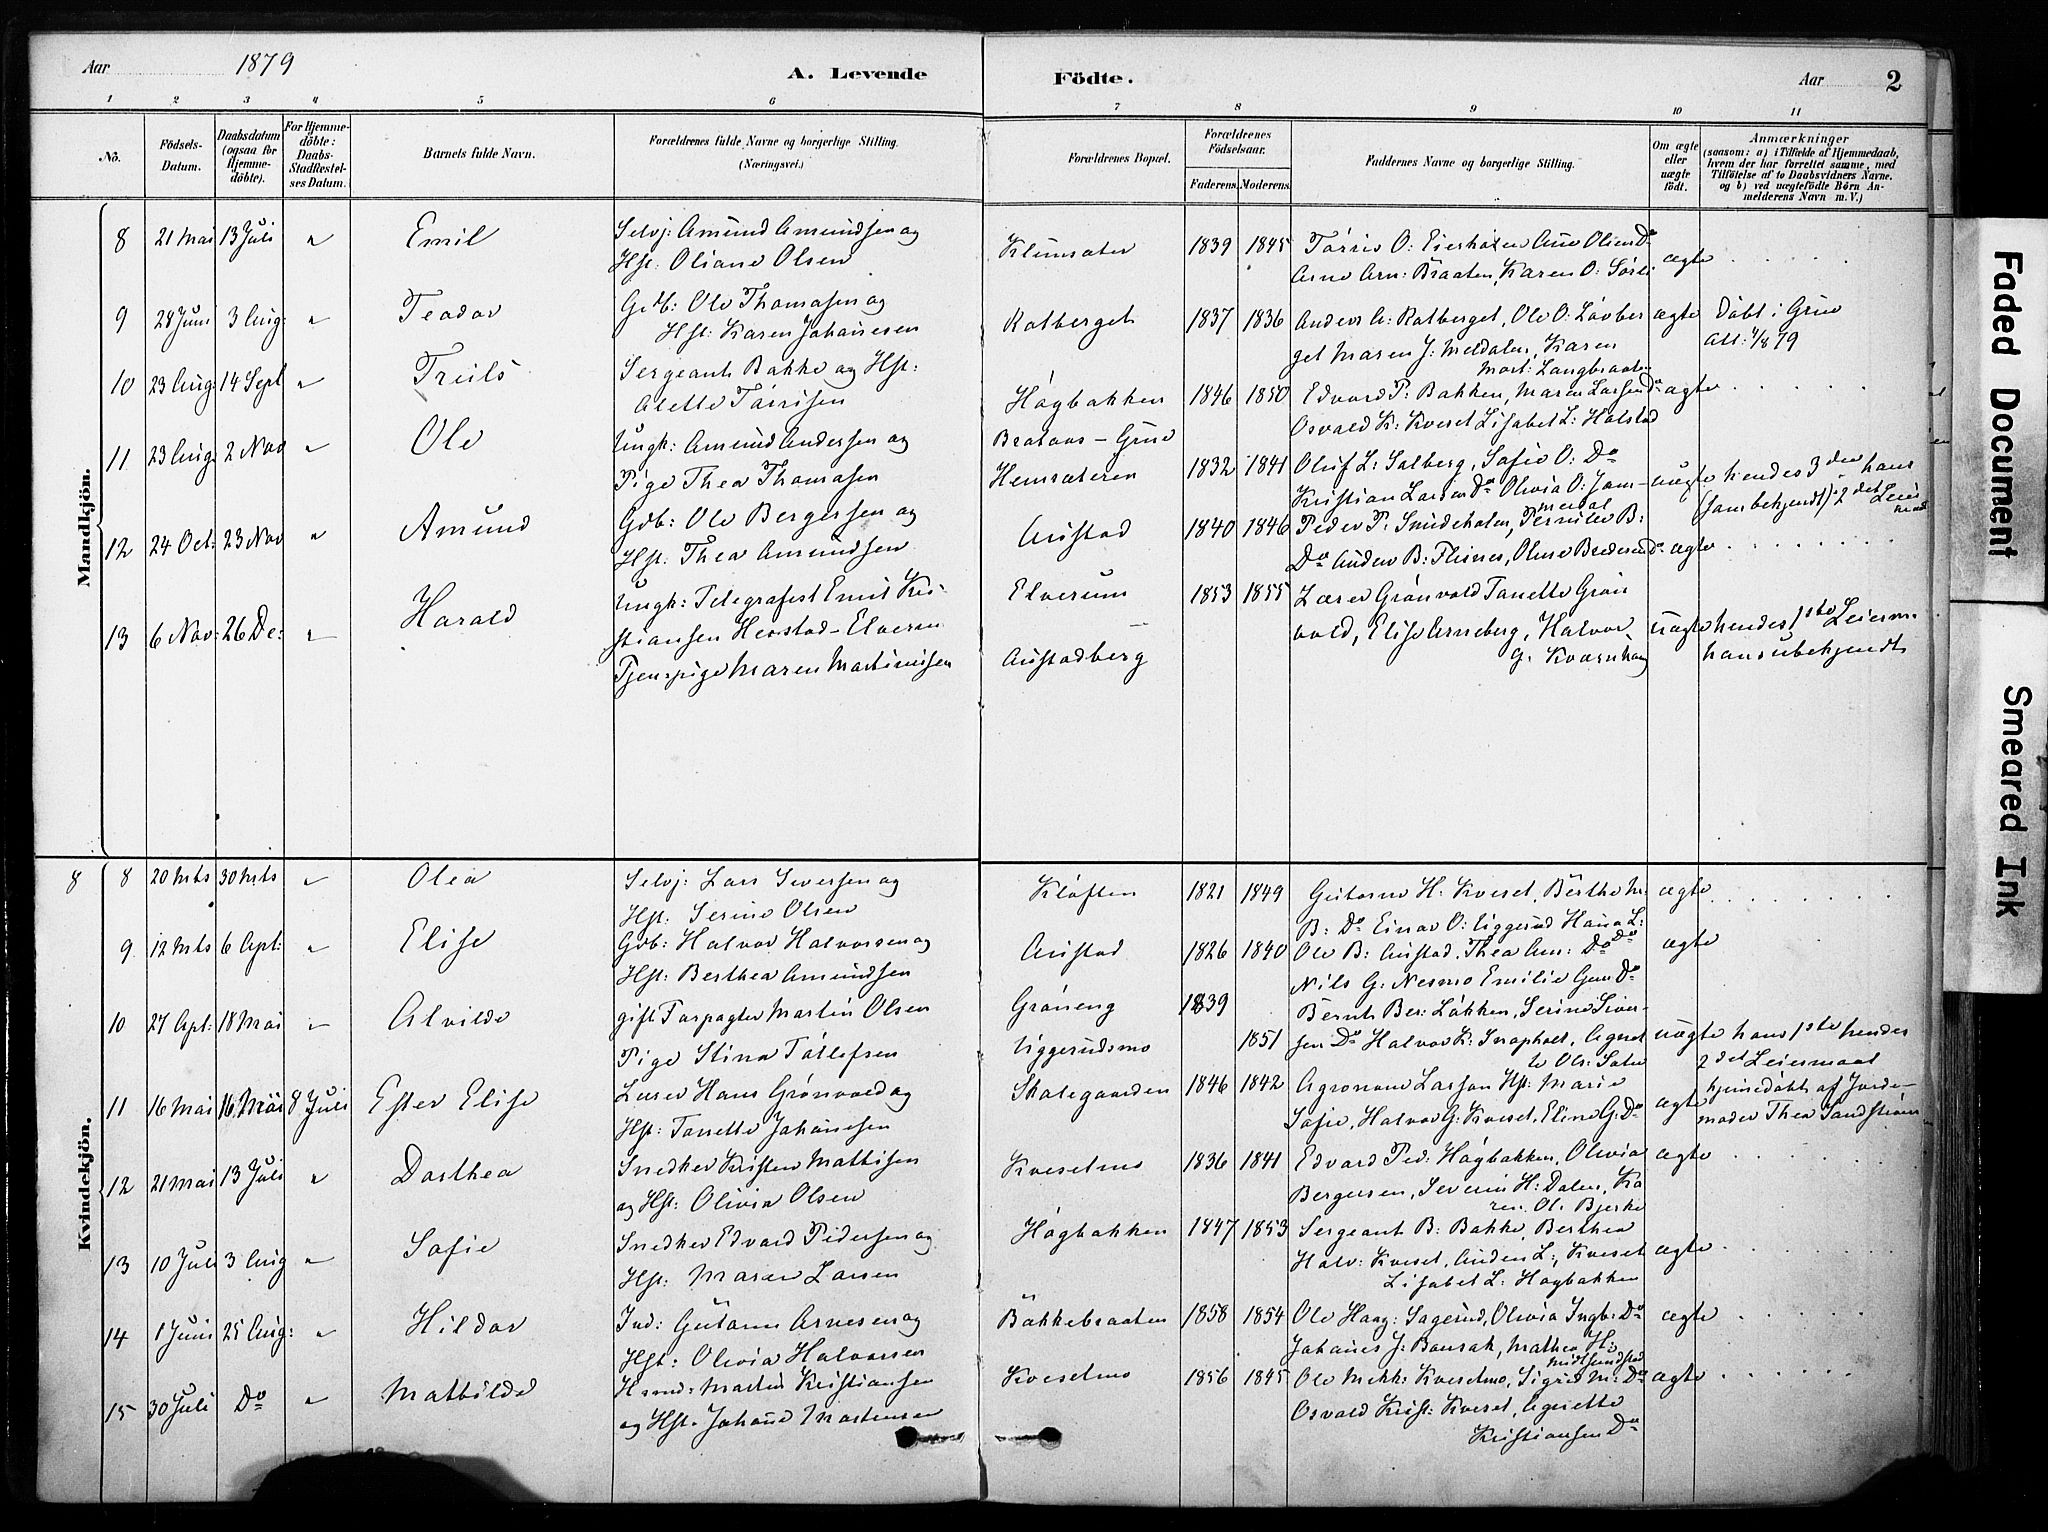 Aar 1879 A. Levende Födte. Aar 2
1 2 3 4 5 6 7 8 9 10 11
No.
Födsels-Datum.
Daabsdatum (ogsaa for Hjemme-döbte).
For Hjemme-döbte: Daabs-Stadfæstel-ses Datum.
Barnets fulde Navn.
Forældrenes fulde Navne og borgerlige Stilling. (Næringsvei.)
Forældrenes Bopæl.
Forældrenes Födselsaar.
Faderens. Moderens.
Faddernes Navne og borgerlige Stilling.
Om ægte eller uægte födt.
Anmærkninger
(saasom: a) i Tilfælde af Hjemmedaab,
hvem der har forrettet samme, med
Tilföielse af to Daabsvidners Navne.
og b) ved uægtefödte Börn An-
melderens Navn m. V.)
Mandkjön.
8 21 Mai 13 Juli " Emil Selvj: Amund Amundsen og
Hst: Oliane Olsen
1839 1845 O: Ane Olsen Do
Arne Arn: Braaten, Karen O: Sörli
ægte
9 28 Juni 3 Aug: " Teodor Gdb: Ole Thomasen og
Hst: Karen Johannesen
Kalberget 1837 1836 Anders A: Kalberget, Ole O: Lövber
get Maren J: Meldalen, Karen
Mort: Langbraaten
ægte Döbt i Grue
Att: 4/8 79
10 23 Aug: 14 Sept " Truls Sergeant Bakke og Hst:
Alette
Högbakken 1846 1850 Edvard P: Bakken, Maren Larsen Do
Osvald K: Kveset Lisabet L: Holstad
ægte
11 23 Aug: 2 Nov " Ole Ungk: Amund Andersen og
Pige Thea Thomasen
Grue
Hemsæteren 1832 1841 Oluf L: Solberg, Sofie O: Do
Kristian Larsen Do Olivia O: Jam-
medal
uægte hendes 3den hans
(sambekjendt) 2det Leier
maal
12 24 Oct: 23 Nov " Amund Gdb: Ole Bergersen og
Hst: Thea Amundsen
Austad 1840 1846 Peder P: Smideholen, Pernille B:
Do Anders B: Flisnes, Oline Do
ægte
13 6 Nov: 26 De: " Harald Ungk: Telegrafist Emil Kri-
stiansen Elverum
Tjenspige Maren Martinusen
Elverum
Austadberg
1853 1855 Lærer Grönvold Tanette Grön
vold, Elise Arneberg, Halvor
G: Kværnhaug
uægte hendes 1ste Leierm
hans ubekjendt
Kvindekjön.
8 8 20 Mts 30 Mts " Olea Selvj: Lars Iversen og
Hst: Serine Olsen
Klöften 1821 1849 Gutorm H: Kveset, Berthe M:
B: Do Einar O: Uggerud Hana L:
Do
ægte
9 12 Mts 6 Apr: " Elise Gdb: Halvor Halvorsen og
Hst: Berthea Amundsen
Austad 1826 1840 Ole B: Austad, Thea Am: Do
Nils G: Nesmo Emilie Gun: Do
ægte
10 27 Apr: 18 Mai " Alvilde gift Forpagter Martin Olsen
Pige Stina Tollefsen
Gröneng 1839
Uggerudsmo 1851
Bernt Ber: Lökken, Serine Siver-
sen Do Halvor L: Snapholt, Agnet
te Ols:
uægte hans 1ste hendes
2det Leiermaal
11 16 Mai 16 Mai 8 Juli Ester Elise Lærer Hans Grönvold og
Hst: Tanette Johannesen
Skolegaarden 1846 1842 Agronom Larsen Hst: Marie
Sofie, Halvor G: Kveset, Eline G: Do
ægte hjemedöbt af Jorde-
moder Thea Sandström
12 21 Mai 13 Juli " Dorthea Snedker Kristen Mathisen
og Hst: Olivia Olsen
Kvesetmo 1836 1841 Edvard Ped: Högbakken, Olivia
Bergersen, Severin H: Dalen, Ka
ren Ol. Bjerke
ægte
13 10 Juli 3 Aug " Sofie Snedker Edvard Pedersen og
Hst: Maren Larsen
Högbakken 1847 1853 Sergeant B: Bakke, Berthea
Halv: Kveset, Anders L: Kveset
Lisabet L: Högbakken
ægte
14 1 Juni 25 Aug: " Hildor Ind: Gutorm Arnesen og
Hst: Olivia Halvorsen
Bakkebraaten 1858 1854 Ole Haag: Sagerud, Olivia Ingb: Do
Johanes J: Mathea H:
Midtsundstad
ægte
15 30 Juli Do " Mathilde Martin Kristiansen
og Hst. Johane Mortensen
Kvesetmo 1856 1845 Ole Mikk: Kvesetmo, Sigrid M: Do
Osvald Krist: Kveset, Agnette
Kristiansen Do
ægte
Faded Document
Smeared Ink